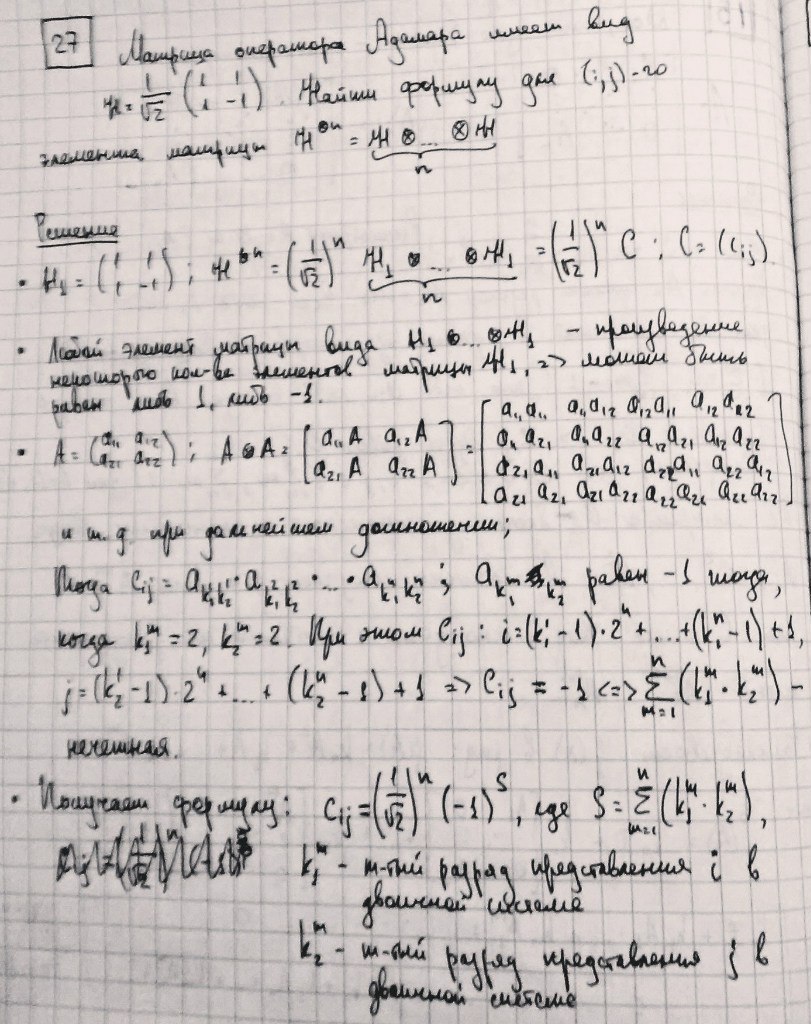 27 Матрица оператора Адамара имеет вид
H = \frac{1}{\sqrt{2}} \begin{pmatrix} 1 & 1 \\ 1 & -1 \end{pmatrix}. Найти формулу для (i,j)-го
элемента матрицы H^{⊗n} = \underbrace{H ⊗ ... ⊗ H}_{n}
Решение
• H_1 = \begin{pmatrix} 1 & 1 \\ 1 & -1 \end{pmatrix}; H^{⊗n} = \left(\frac{1}{\sqrt{2}}\right)^n \underbrace{H_1 ⊗ ... ⊗ H_1}_{n} = \left(\frac{1}{\sqrt{2}}\right)^n C; C = (c_{ij})
• Любой элемент матрицы вида H_1 ⊗ ... ⊗ H_1 - произведение
некоторого кол-ва элементов матрицы H_1, => может быть
равен либо 1, либо -1.
• A = \begin{pmatrix} a_{11} & a_{12} \\ a_{21} & a_{22} \end{pmatrix}; A ⊗ A = \begin{bmatrix} a_{11}A & a_{12}A \\ a_{21}A & a_{22}A \end{bmatrix} = \begin{bmatrix} a_{11}a_{11} & a_{11}a_{12} & a_{12}a_{11} & a_{12}a_{22} \\ a_{11}a_{21} & a_{11}a_{22} & a_{12}a_{21} & a_{12}a_{22} \\ a_{21}a_{11} & a_{21}a_{12} & a_{22}a_{11} & a_{22}a_{12} \\ a_{21}a_{21} & a_{21}a_{22} & a_{22}a_{21} & a_{22}a_{22} \end{bmatrix}
и т.д при дальнейшем домножении;
Тогда c_{ij} = a_{k_1^1 k_2^1} · a_{k_1^2 k_2^2} · ... · a_{k_1^n k_2^n}; a_{k_1^m k_2^m} равен -1 тогда,
когда k_1^m = 2, k_2^m = 2. При этом c_{ij}: i = (k_1^1 - 1) · 2^n + ... + (k_1^n - 1) + 1,
j = (k_2^1 - 1) · 2^n + ... + (k_2^n - 1) + 1 => c_{ij} = -1 <=> \sum_{m=1}^{n} (k_1^m · k_2^m) -
нечетная.
• Получаем формулу: c_{ij} = \left(\frac{1}{\sqrt{2}}\right)^n (-1)^S, где S = \sum_{m=1}^{n} (k_1^m · k_2^m),
k_1^m - m-тый разряд представления i в
двоичной системе
k_2^m - m-тый разряд представления j в
двоичной системе